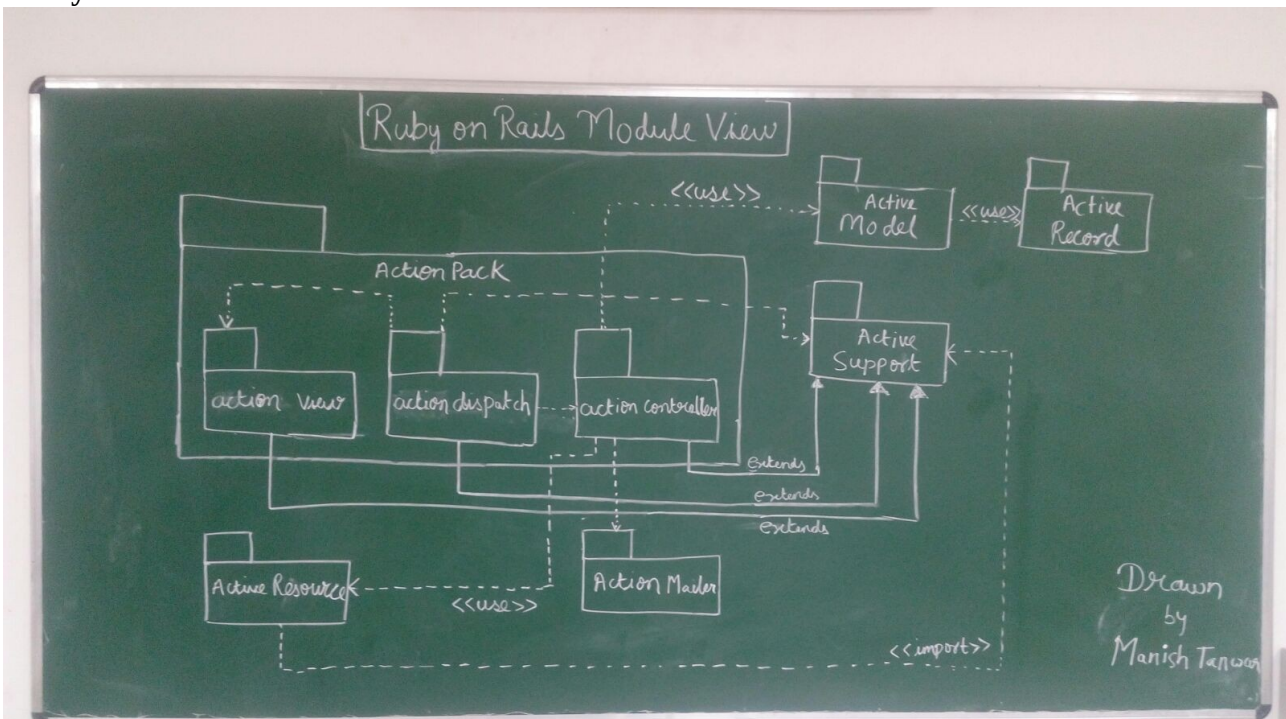 Ruby on Rails Module View
<<use>>
Active
Model
<<use>>
Active
Record
Action Pack
Active
Support
action view
action dispatch
action controller
extends
extends
extends
Active Resource
<<use>>
Action Mailer
<<import>>
Drawn
by
Manish Tanwar